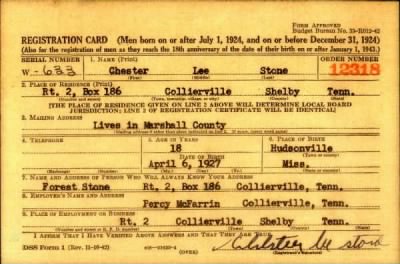 Form Approved
Budget Bureau No. 33-R012-42
REGISTRATION CARD (Men born on or after July 1, 1924, and on or before December 31, 1924)
(Also for the registration of men as they reach the 18th anniversary of the date of their birth on or after January 1, 1943.)
SERIAL NUMBER 1. NAME (Print) ORDER NUMBER
W - 633 Chester Lee Stone 12318
(First) (Middle) (Last)
2. PLACE OF RESIDENCE (Print)
Rt. 2, Box 186 Collierville Shelby Tenn.
(Number and street) (Town, township, village, or city) (County) (State)
[THE PLACE OF RESIDENCE GIVEN ON LINE 2 ABOVE WILL DETERMINE LOCAL BOARD
JURISDICTION; LINE 2 OF REGISTRATION CERTIFICATE WILL BE IDENTICAL]
3. MAILING ADDRESS
Lives in Marshall County
(Mailing address if other than place indicated on line 2. If same, insert word same)
4. TELEPHONE 5. AGE IN YEARS 6. PLACE OF BIRTH
18 Hudsonville
DATE OF BIRTH (Town or county)
April 6, 1927 Miss.
(Exchange) (Number) (Mo.) (Day) (Yr.) (State or country)
7. NAME AND ADDRESS OF PERSON WHO WILL ALWAYS KNOW YOUR ADDRESS
Forest Stone Rt. 2, Box 186 Collierville, Tenn.
8. EMPLOYER'S NAME AND ADDRESS
Percy McFarrin Collierville, Tenn.
9. PLACE OF EMPLOYMENT OR BUSINESS
Rt. 2 Collierville Shelby Tenn.
(Number and street or R. F. D. number) (Town) (County) (State)
I AFFIRM THAT I HAVE VERIFIED ABOVE ANSWERS AND THAT THEY ARE TRUE.
DSS Form 1 (Rev. 11-16-42) (OVER) Chester lee stone
(Registrant's signature)